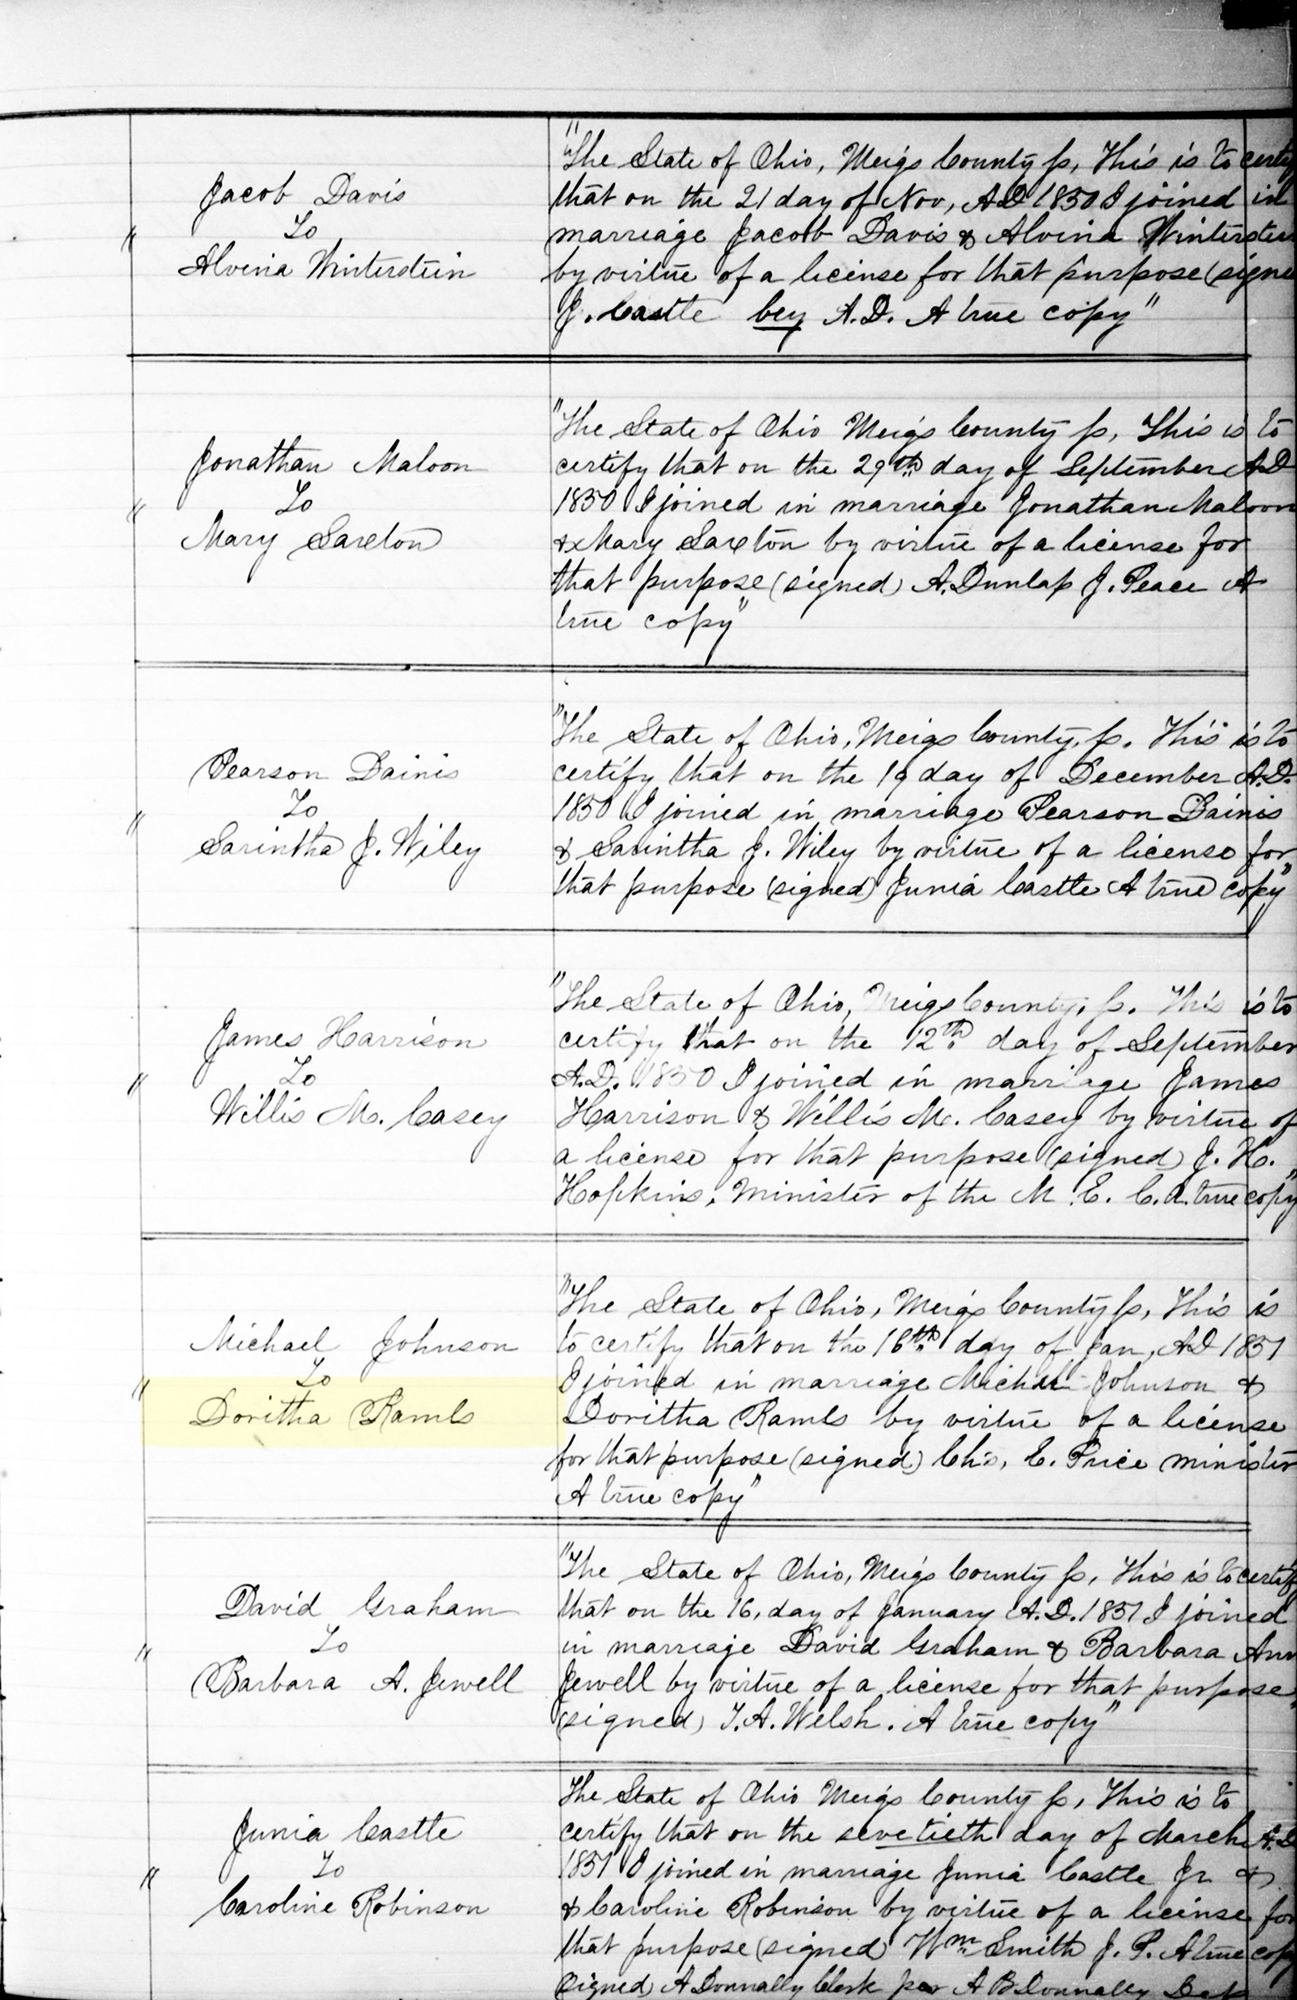 Jacob Davis
To
Alvina Winterstein
"The State of Ohio, Meigs County ss, This is to certify
that on the 21 day of Nov, A.D 1850 I joined in
marriage Jacob Davis & Alvina Winterstein
by virtue of a license for that purpose (signed
J. Castle A.D. A true copy"
Jonathan Maloon
To
Mary Saxton
"The State of Ohio Meigs County ss, This is to
certify that on the 29th day of September A.D
1850 I joined in marriage Jonathan Maloon
& Mary Saxton by virtue of a license for
that purpose (signed) A. Dunlap J. Peace A
true copy"
Pearson Dainis
To
Sarintha J. Wiley
"The State of Ohio, Meigs County, ss. This is to
certify that on the 19 day of December A.D.
1850 I joined in marriage Pearson Dainis
& Sarintha J. Wiley by virtue of a license for
that purpose (signed) Junia Castle A true copy"
James Harrison
To
Willis M. Casey
"The State of Ohio, Meigs County, ss. This is to
certify that on the 12th day of September
A.D. 1850 I joined in marriage James
Harrison & Willis M. Casey by virtue of
a license for that purpose (signed) J. H.
Hopkins, Minister of the M. E. C. A true copy"
Michael Johnson
To
Doritha Ramls
"The State of Ohio, Meigs County ss, This is
to certify that on the 16th day of Jan, A.D 1851
I joined in marriage Michael Johnson &
Doritha Ramls by virtue of a license
for that purpose (signed) Chs, E. Price minister
A true copy"
David Graham
To
Barbara A. Jewell
"The State of Ohio, Meigs County ss, This is to certify
that on the 16, day of January A.D. 1851 I joined
in marriage David Graham & Barbara Ann
Jewell by virtue of a license for that purpose
(signed) T. A. Welsh. A true copy"
Junia Castle
To
Caroline Robinson
The State of Ohio Meigs County ss, This is to
certify that on the sevetieth day of March A.D
1851 I joined in marriage Junia Castle Jr &
& Caroline Robinson by virtue of a license for
that purpose (signed) Wm Smith J. P. A true copy
Signed A Donnally Clerk per A B Donnally Dep